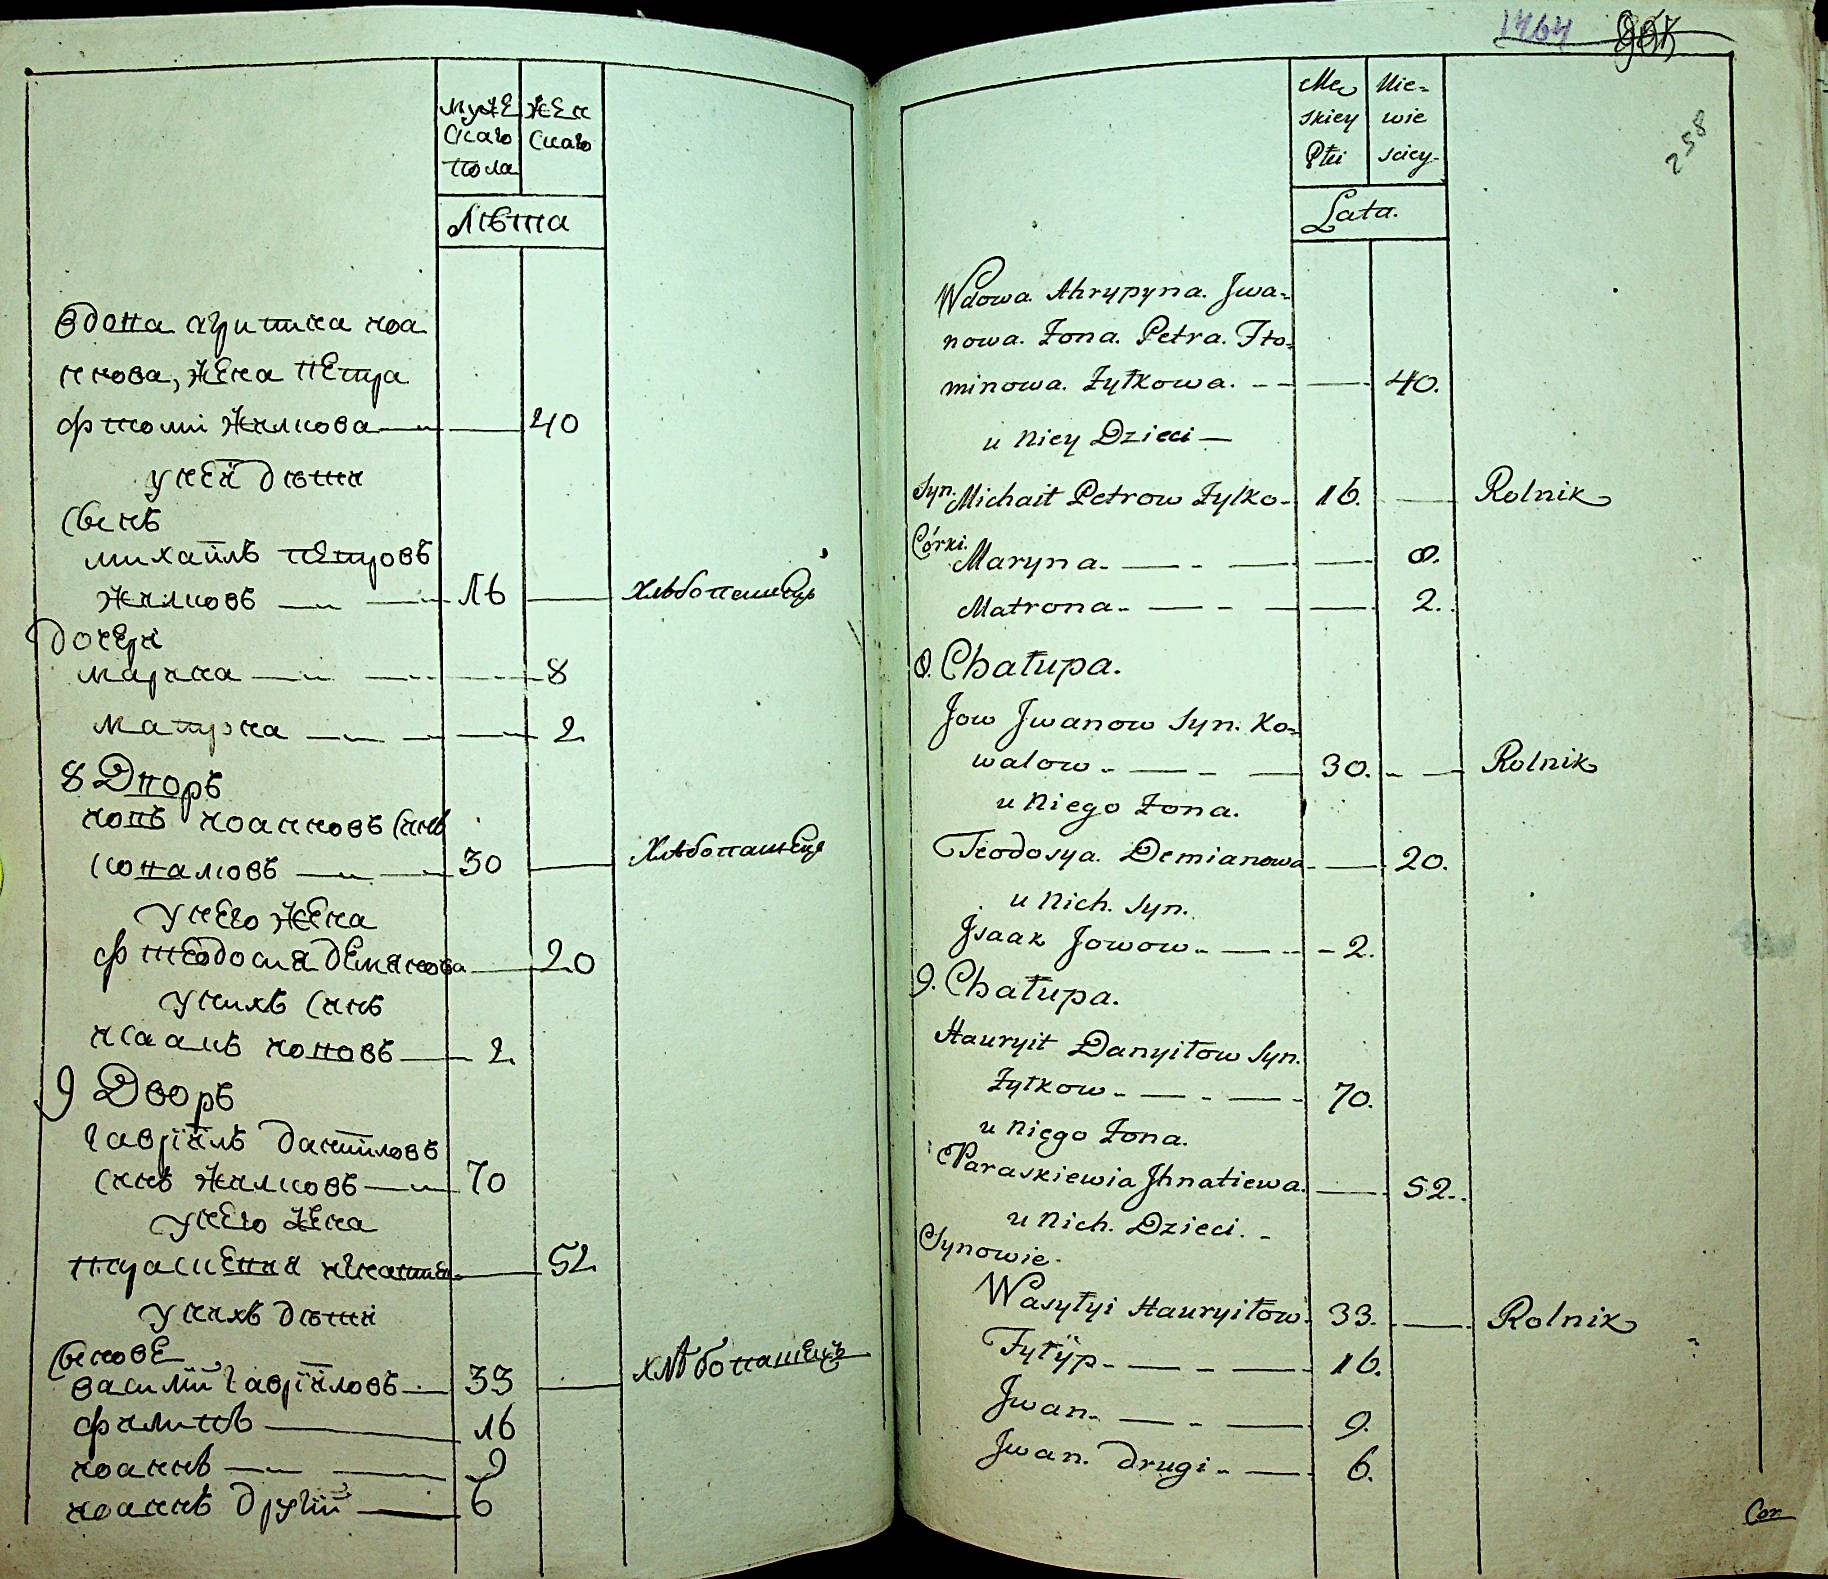 муже
скаго
пола
жен
скаго
лѣта
вдова агрипина иоа
ннова, жена петра
фтомы жилкова 40
у ней дѣти
сынъ
михаилъ петровъ
жилковъ 16 хлѣбопашецъ
дочери
марина 8
матрона 2
8 Дворъ
иовъ иоанновъ синъ
коваловъ 30 хлѣбопашецъ
у него жена
фтеодосия демянова 20
у нихъ синъ
исаакъ иововъ 2
9 Дворъ
гавріилъ даниловъ
синъ жилковъ 70
у него жена
праскевия игнатиева 52
у нихъ дѣти
сынове
василий гавріиловъ 33 хлѣбопашецъ
филипъ 16
иоаннъ 9
иоаннъ другий 6
1464
258
Mę
skiey
Płci
Nie-
wie
sciey
Lata.
Wdowa. Ahrypyna. Jwa-
nowa. Żona. Petra. Fto-
minowa. Żyłkowa. 40.
u Niey Dzieci
Syn. Michaił Petrow Żyłko 16. Rolnik
Córki.
Maryna 8.
Matrona 2.
8. Chałupa.
Jow Jwanow Syn. Ko-
walow 30. Rolnik
u Niego Żona.
Fteodosya. Demianowa 20.
u Nich. Syn.
Jsaak Jowow 2.
9. Chałupa.
Hauryił Danyiłow Syn.
Żyłkow 70.
u Niego Żona.
Paraskiewia Jhnatiewa. 52.
u Nich. Dzieci.
Synowie.
Wasyłyi Hauryiłow 33. Rolnik
Fyłyp 16.
Jwan 9.
Jwan. drugi 6.